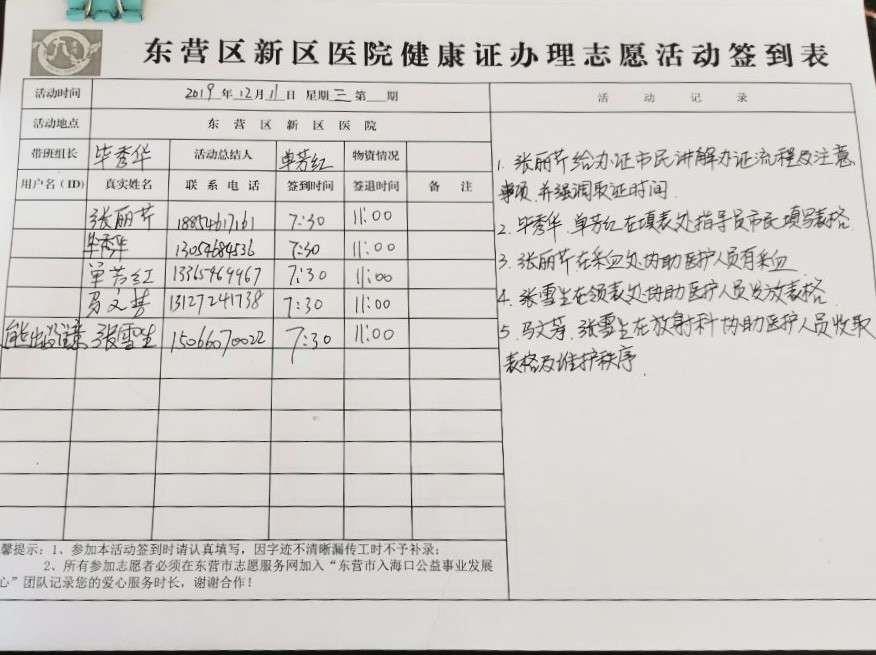 东营区新区医院健康证办理志愿活动签到表
活动时间 2019年12月11日 星期三 第 期 活动记录
活动地点 东营区新区医院
带班组长 毕秀华 活动总结人 单芳红 物资情况
用户名(ID) 真实姓名 联系电话 签到时间 签退时间 备注
张丽芹 18854617161 7:30 11:00
毕秀华 13054684536 7:30 11:00
单芳红 13365469967 7:30 11:00
马文芳 13127241738 7:30 11:00
熊出没 张雪生 15066070022 7:30 11:00
1. 张丽芹给办证市民讲解办证流程及注意
事项,并强调取证时间.
2. 毕秀华.单芳红在填表处指导员市民填写表格.
3. 张丽芹在采血处协助医护人员有采血
4. 张雪生在领表处协助医护人员发放表格.
5. 马文芳.张雪生在放射科协助医护人员收取
表格及维护秩序.
馨提示:1、参加本活动签到时请认真填写,因字迹不清晰漏传工时不予补录;
2、所有参加志愿者必须在东营市志愿服务网加入“东营市入海口公益事业发展
心”团队记录您的爱心服务时长,谢谢合作!